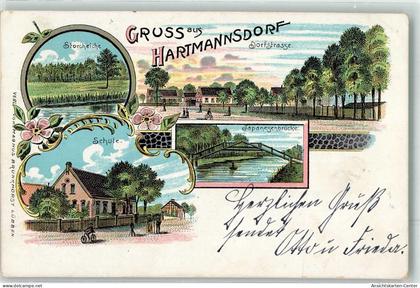 GRUSS aus
HARTMANNSDORF
Dorfstrasse.
Storcheiche
Schule.
Japanesenbrücke.
Herzlichen Gruß
sendet
Otto u Frieda.
LÜBBEN
Ansichtskarten-Center